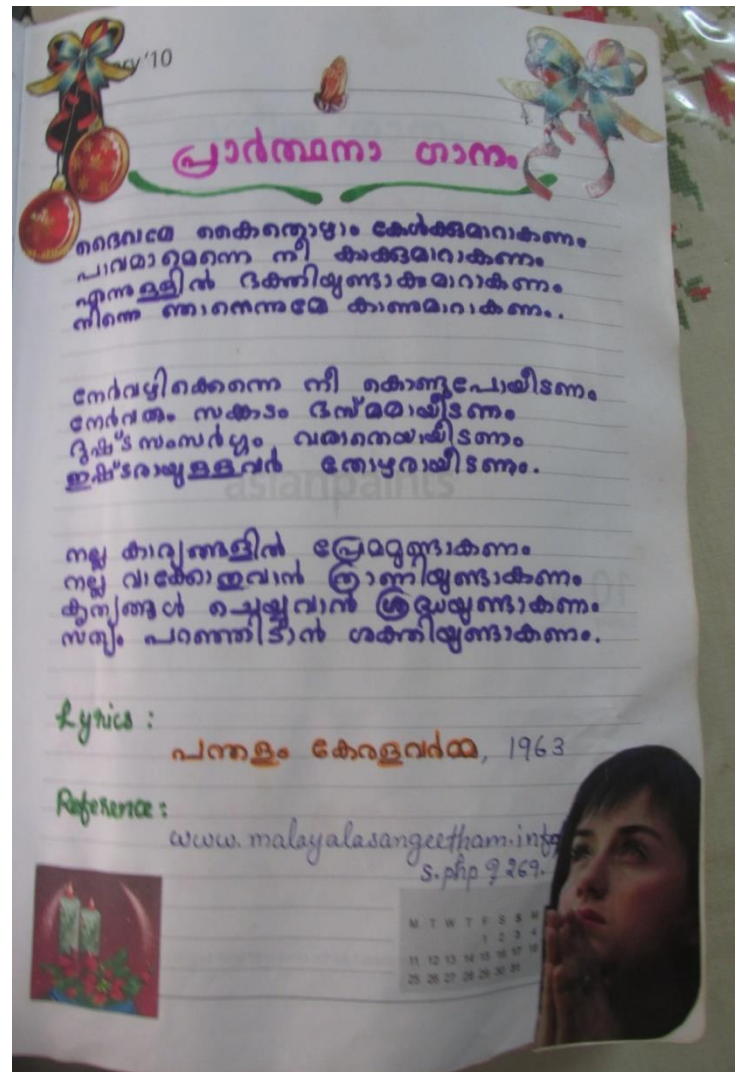 ry '10
പ്രാർത്ഥനാ ഗാനം
ദൈവമേ കൈതൊഴാം കേൾക്കുമാറാകണം
പാവമാമെന്നെ നീ കാക്കുമാറാകണം
എന്നുള്ളിൽ ഭക്തിയുണ്ടാകുമാറാകണം
നിന്നെ ഞാനെന്നുമേ കാണുമാറാകണം..
നേർവഴിക്കെന്നെ നീ കൊണ്ടുപോയീടണം
നേർവരും സങ്കടം ഭസ്മമായീടണം
ദുഷ്ട സംസർഗ്ഗം വരാതെയായീടണം
ഇഷ്ടരായുള്ളവർ തോഴരായീടണം.
നല്ല കാര്യങ്ങളിൽ പ്രേമമുണ്ടാകണം
നല്ല വാക്കോതുവാൻ ത്രാണിയുണ്ടാകണം
കൃത്യങ്ങൾ ചെയ്യുവാൻ ശ്രദ്ധയുണ്ടാകണം
സത്യം പറഞ്ഞിടാൻ ശക്തിയുണ്ടാകണം.
asianpaints
Lyrics :
പന്തളം കേരളവർമ്മ, 1963
Reference :
www.malayalasangeetham.info
s.php ? 269.
M T W T F S S M
1 2 3 4
11 12 13 14 15 16 17 18
25 26 27 28 29 30 31